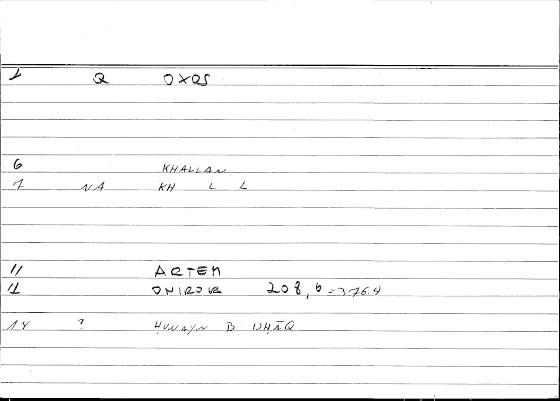 1 Q OXQS
6 KHALLAN
7 NA KH L L
11 ARTEM
12 ONIROCR 208, 6 = 376.4
14 ? ḤUNAYN B ISḤĀQ